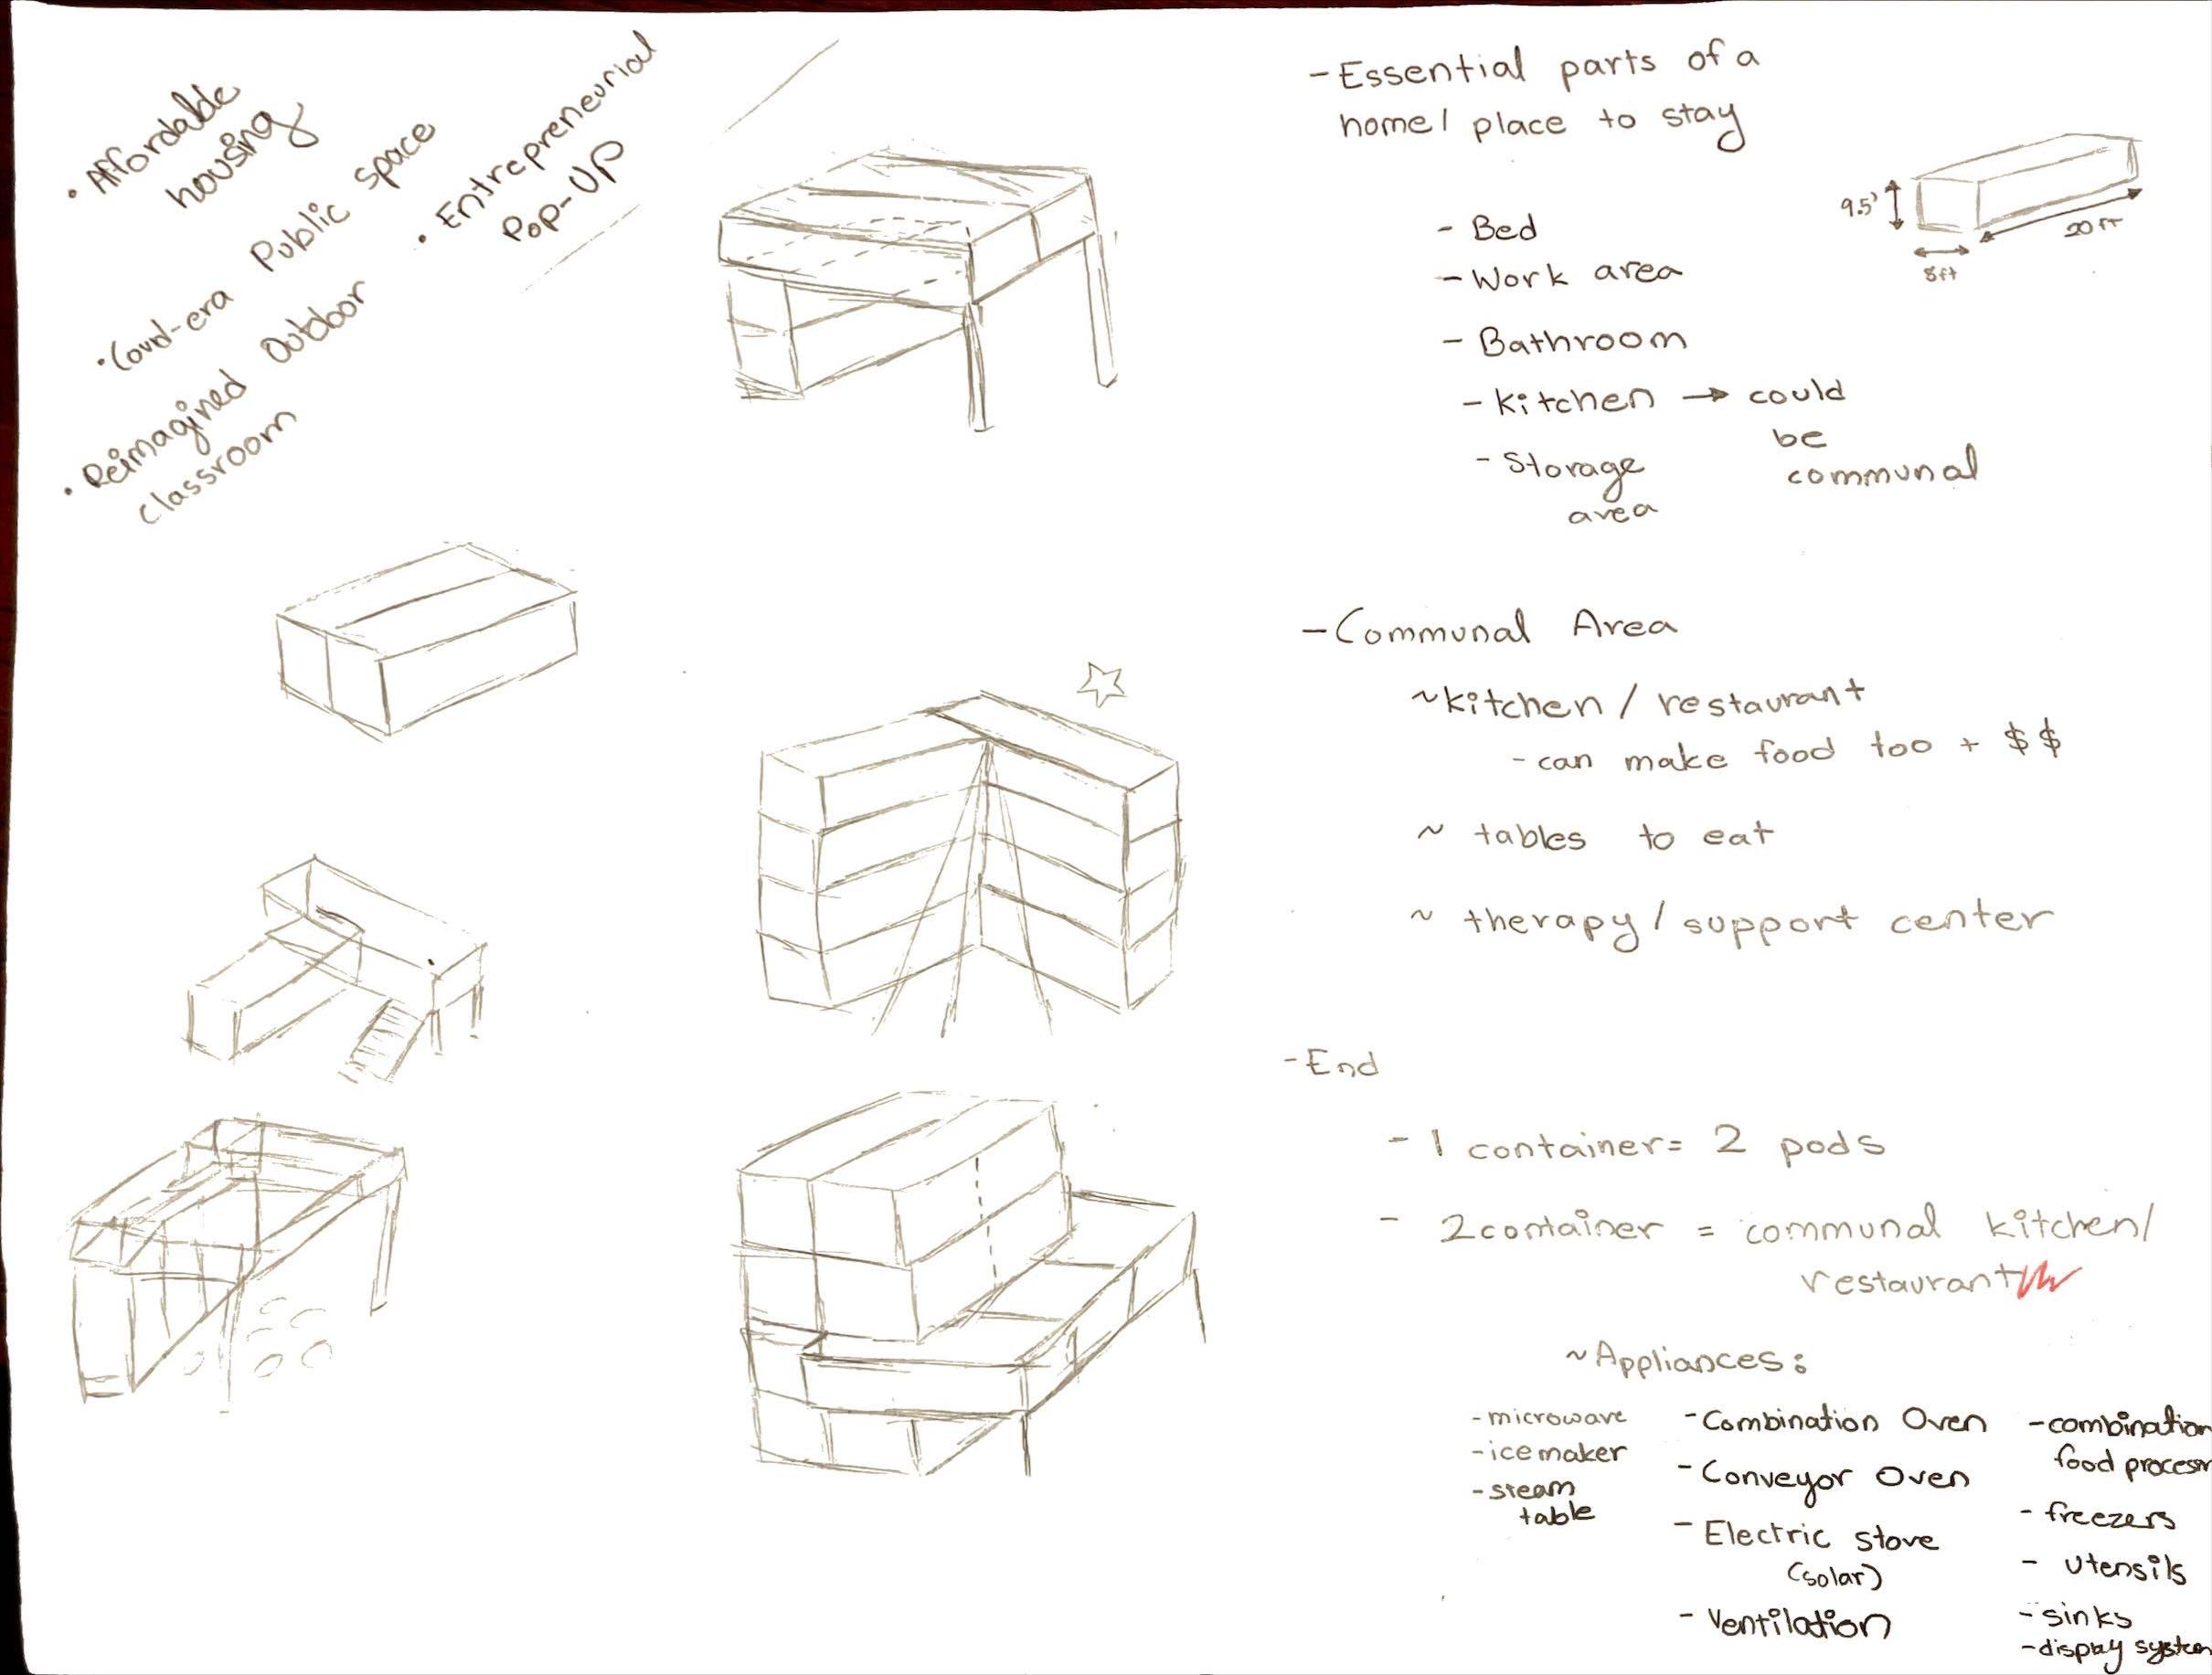 • Affordable
housing
• Covid-era Public Space
• Reimagined Outdoor
Classroom
• Entrepreneurial
Pop-Up
- Essential parts of a
home/ place to stay
9.5'
8ft
20 ft
- Bed
- Work area
- Bathroom
- Kitchen → could
be
communal
- Storage
area
- Communal Area
~ kitchen / restaurant
- can make food too + $$
~ tables to eat
~ therapy / support center
- End
- 1 container = 2 pods
- 2 container = communal kitchen/
restaurant
~ Appliances:
- microwave
- ice maker
- steam
table
- Combination Oven
- Conveyor Oven
- Electric stove
(solar)
- Ventilation
- combination
food procesor
- freezers
- utensils
- sinks
- display system